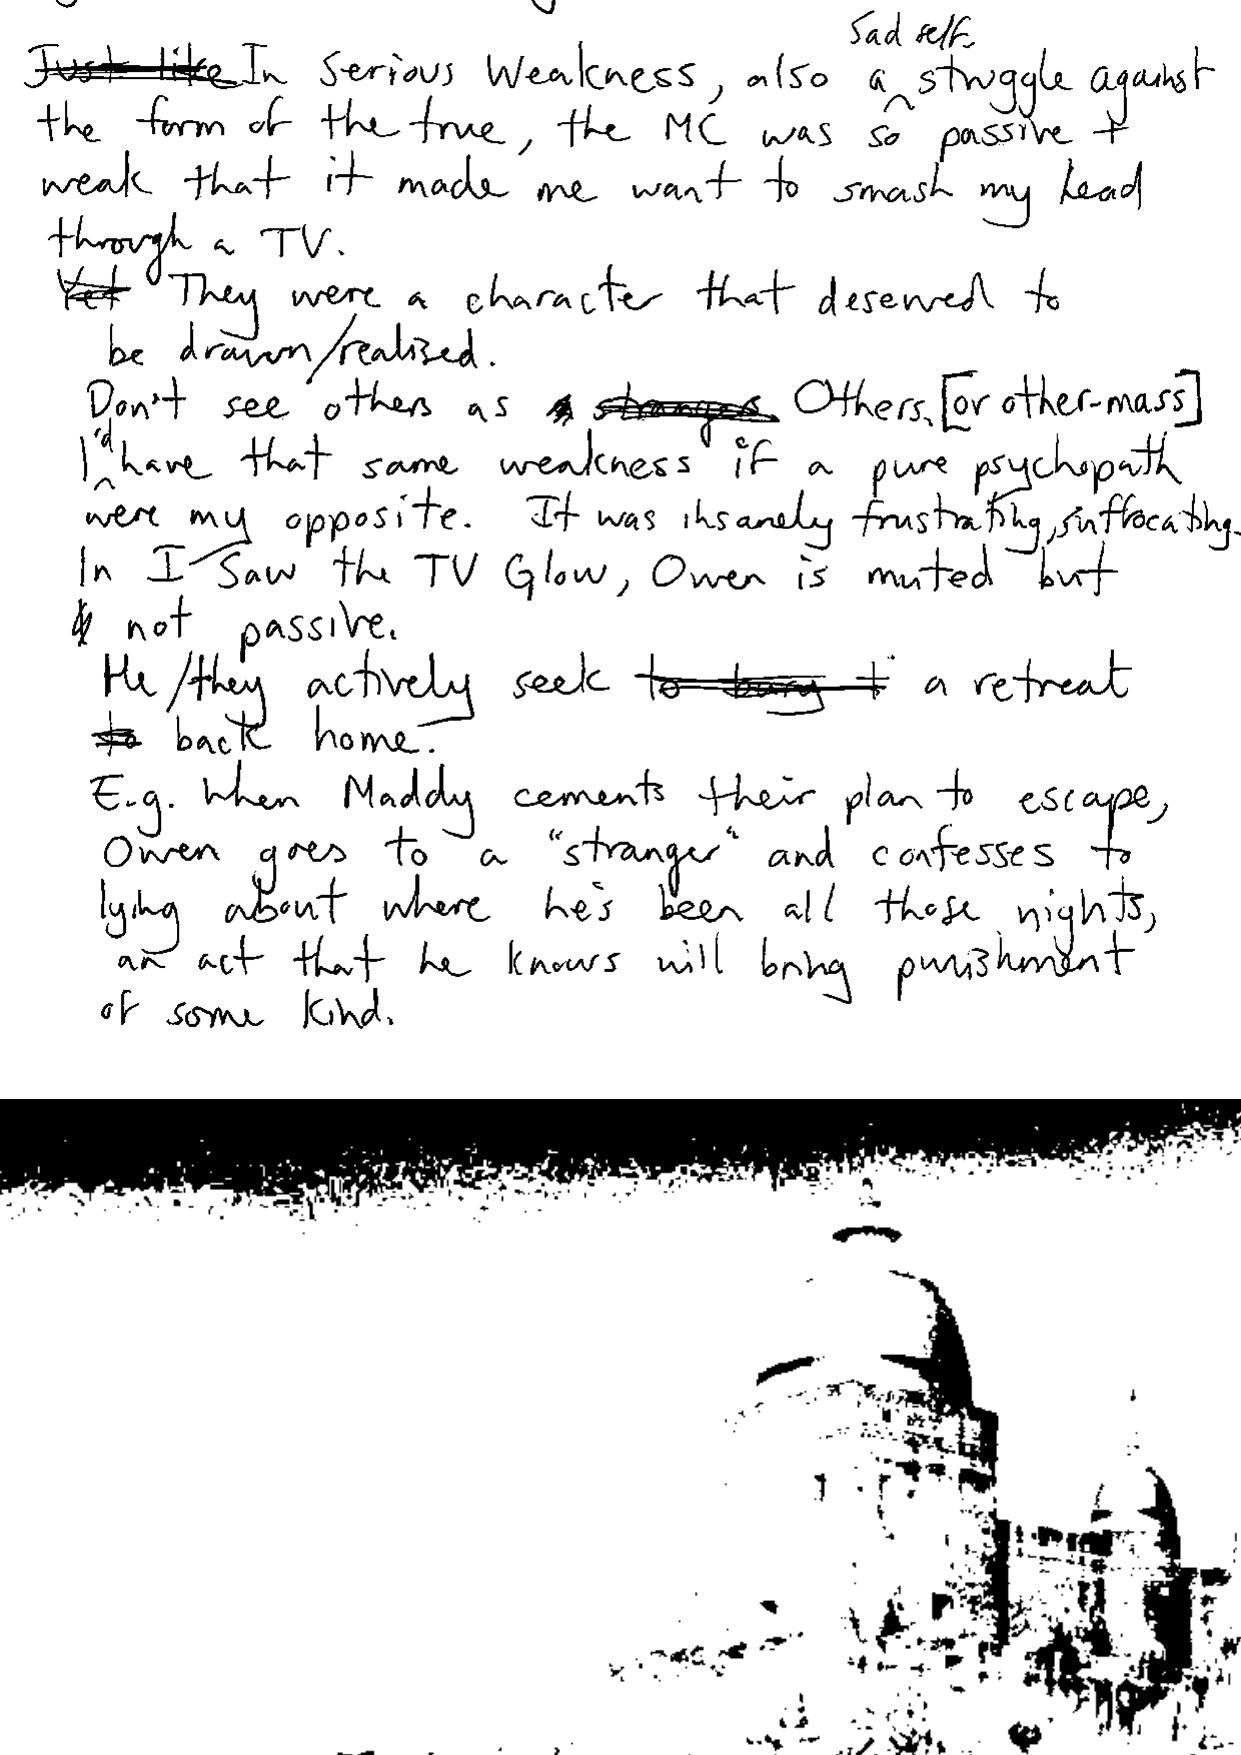 Sad self.
Just like In Serious Weakness, also a struggle against
the form of the true, the MC was so passive +
weak that it made me want to smash my head
through a TV.
Yet They were a character that deserved to
be drawn/realised.
Don't see others as a stranger Others. [or other-mass]
I'd have that same weakness if a pure psychopath
were my opposite. It was insanely frustrating, suffocating.
In I Saw the TV Glow, Owen is muted but
not passive.
He/they actively seek to bury t a retreat
to back home.
E.g. when Maddy cements their plan to escape,
Owen goes to a "stranger" and confesses to
lying about where he's been all those nights,
an act that he knows will bring punishment
of some kind.